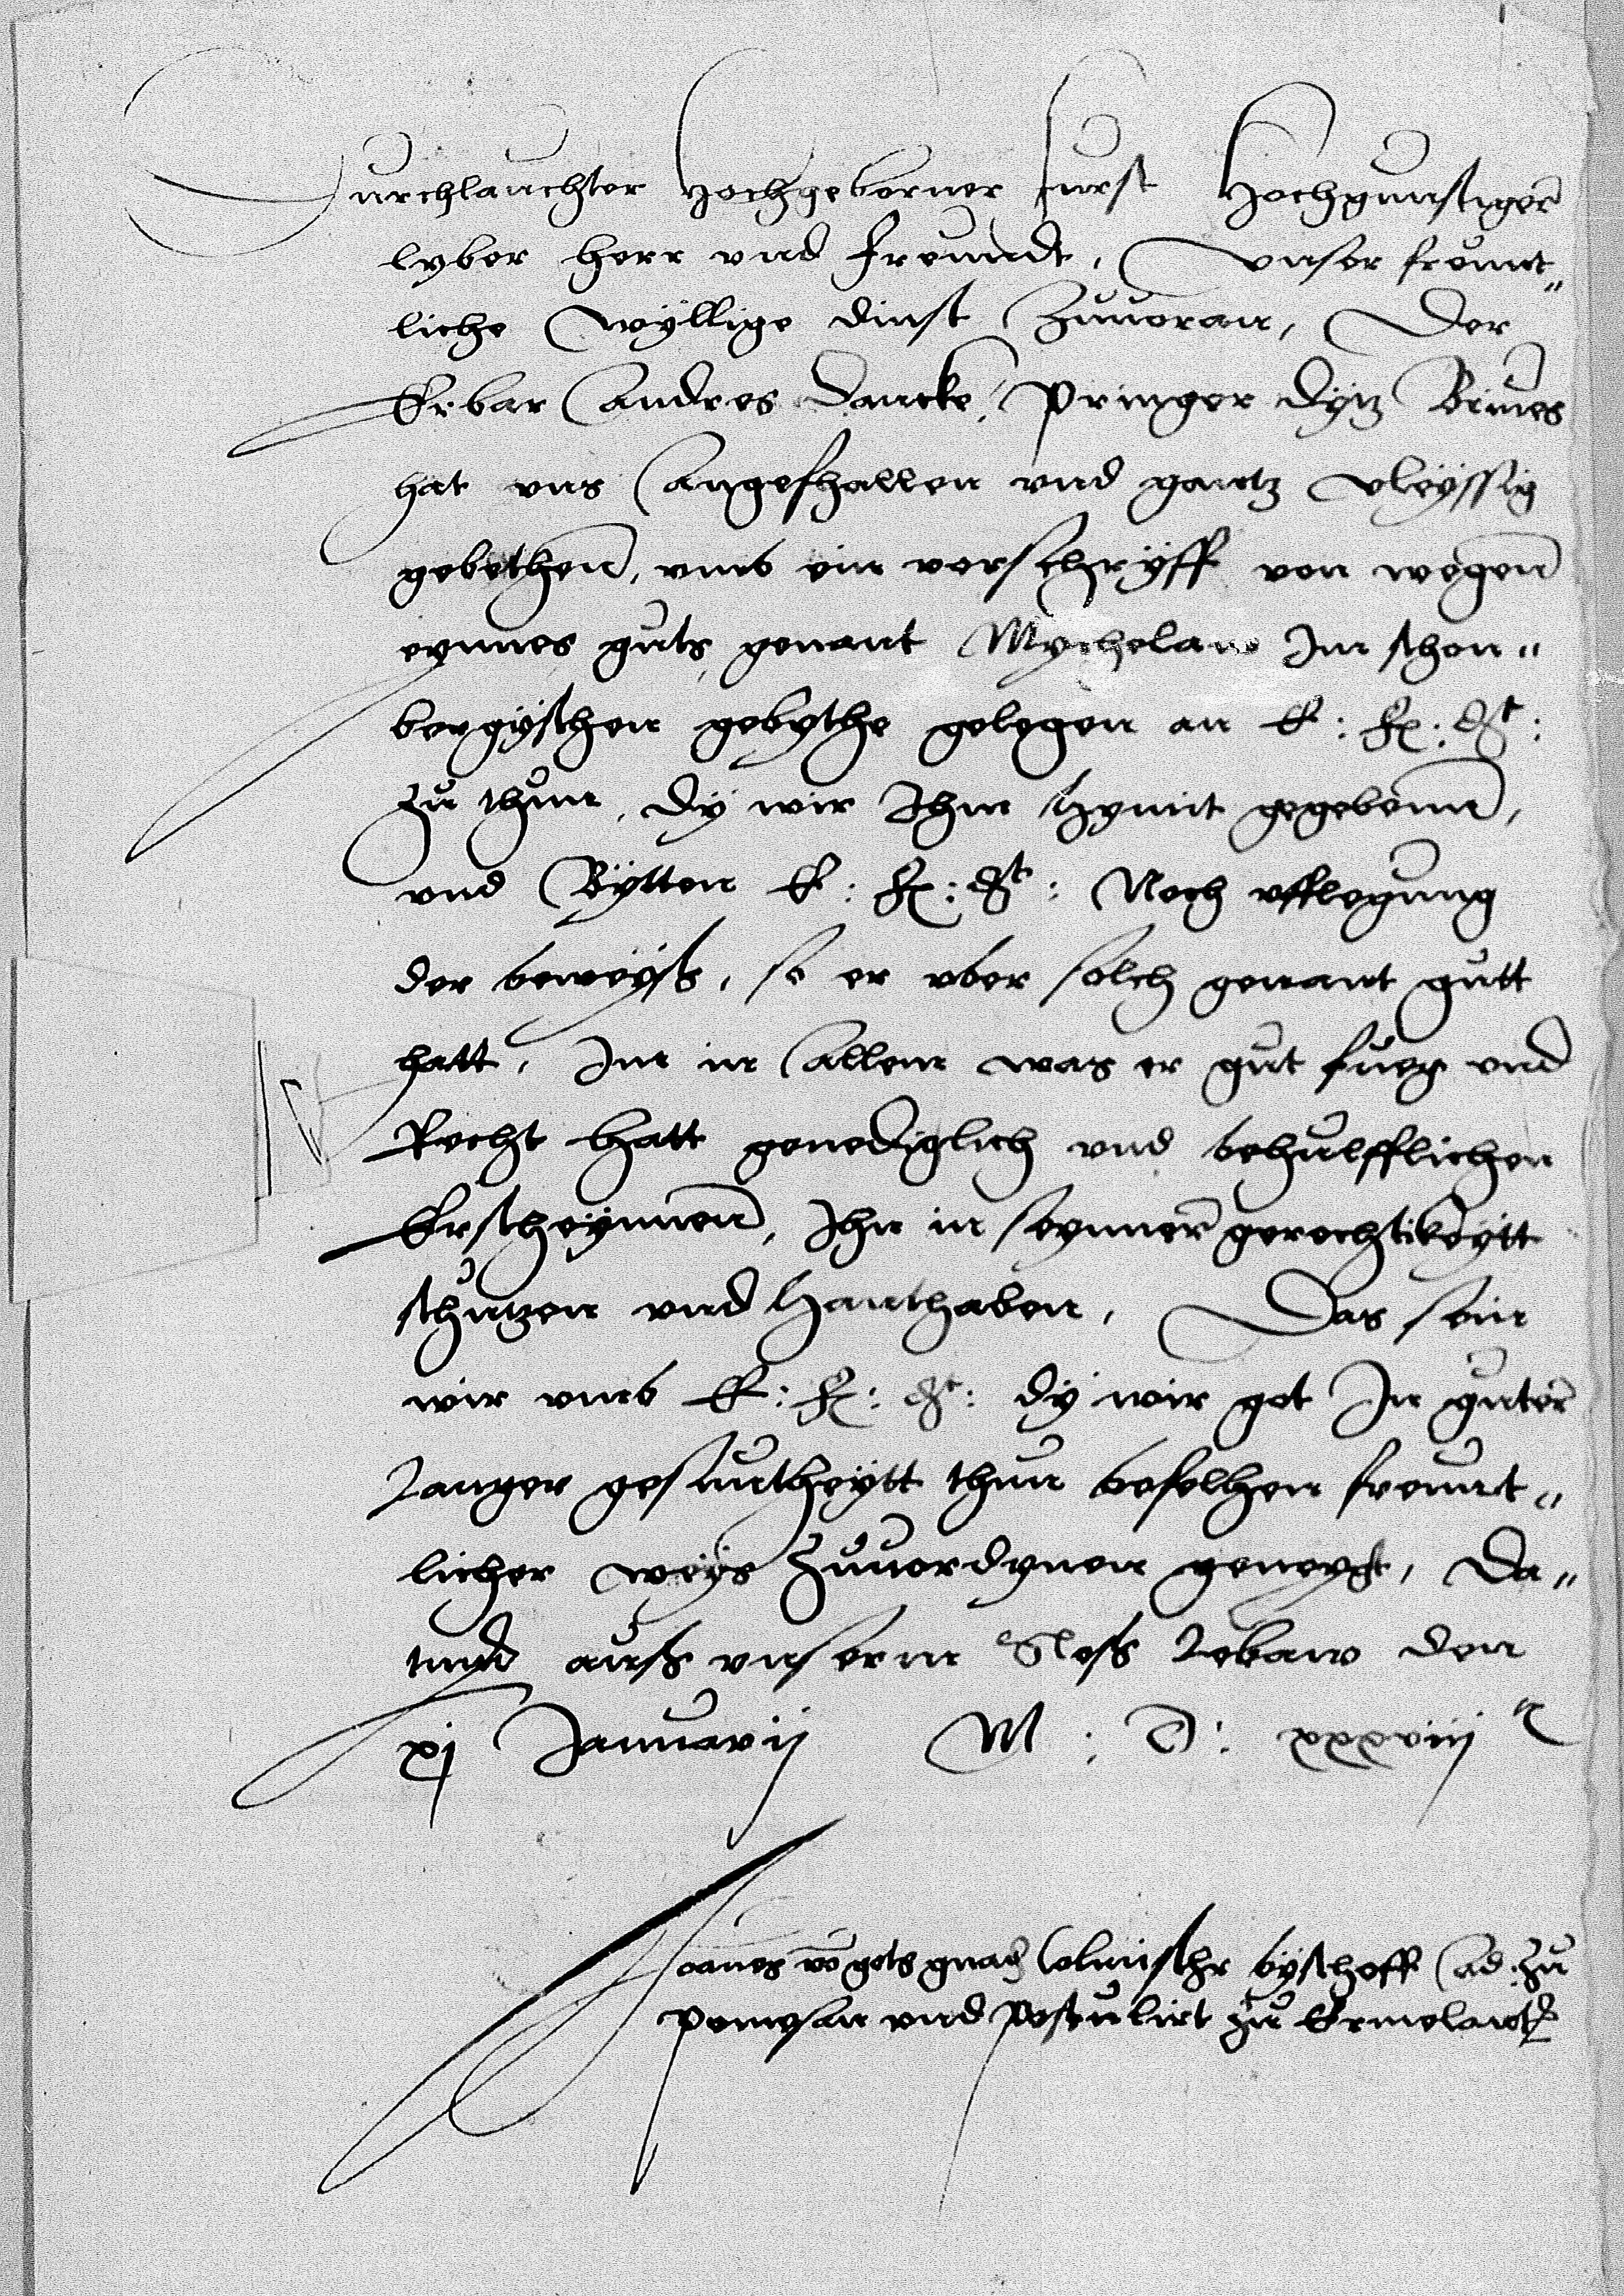 Durchlauchter Hochgeborner furst Hochgunstiger
lyber Herr vnd freundt, Vnser freunt„
liche wyllige dinst Zuuoran, Der
Erbar Andres Dancke, Pringer dytz Brines
hat vns Angefhallen vnd gantz vleyssig
gebethen, vmb ein vorschryff von wegen
eynnes guts genant Mychelaw Im schon„
bergyschen gebythe gelegen an E: F: Dt:
zu thun, dy wir Ihm hymit gegebenn,
vnd Bytten E: F: Dt: Noch vfflegung
der beweyß, so er vber solch genant gutt
hatt, Im in Allem was er gut fueg vnd
Recht hatt genediglich vnd behulfflichen
Erscheynnen, Ihn in seynner gerechtikeytt
schutzen vnd Hanthaben, Das sein
wir vmb E: F: Dt: dy wir got In guter
Langer gesuntheytt thun befelhen freunt„
licher weys Zuuordynen geneygt, Da„
tumb auß vnserm Sloß Lobaw den
xj Januarij M: D: xxxviij
Joannes von gots gnaden Colmischr byschoff Ad. zu
Pomesan vnd Postulirt zu Ermelandt